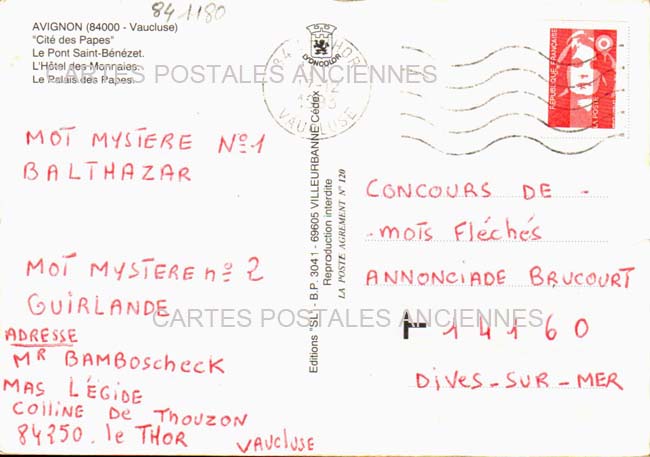 84 1180
AVIGNON (84000 - Vaucluse)
"Cité des Papes"
Le Pont Saint-Bénézet.
L'Hôtel des Monnaies.
Le Palais des Papes.
CARTES POSTALES ANCIENNES
MOT MYSTERE N°1
BALTHAZAR
MOT MYSTERE n° 2
GUIRLANDE
ADRESSE
MR BAMBOSCHECK
MAS L'ÉGIDE
COLLINE DE THOUZON
84250. le THOR VAUCLUSE
D'ONCOLOR
Editions "SL" - B.P. 3041 - 69605 VILLEURBANNE Cédex
Reproduction interdite
LA POSTE AGREMENT N° 120
84 THOR
VAUCLUSE
REPUBLIQUE FRANÇAISE
LA POSTE
CONCOURS DE -
- MOTS FLÉCHÉS
ANNONCIADE BRUCOURT
CARTES POSTALES ANCIENNES
14160
DIVES-SUR-MER